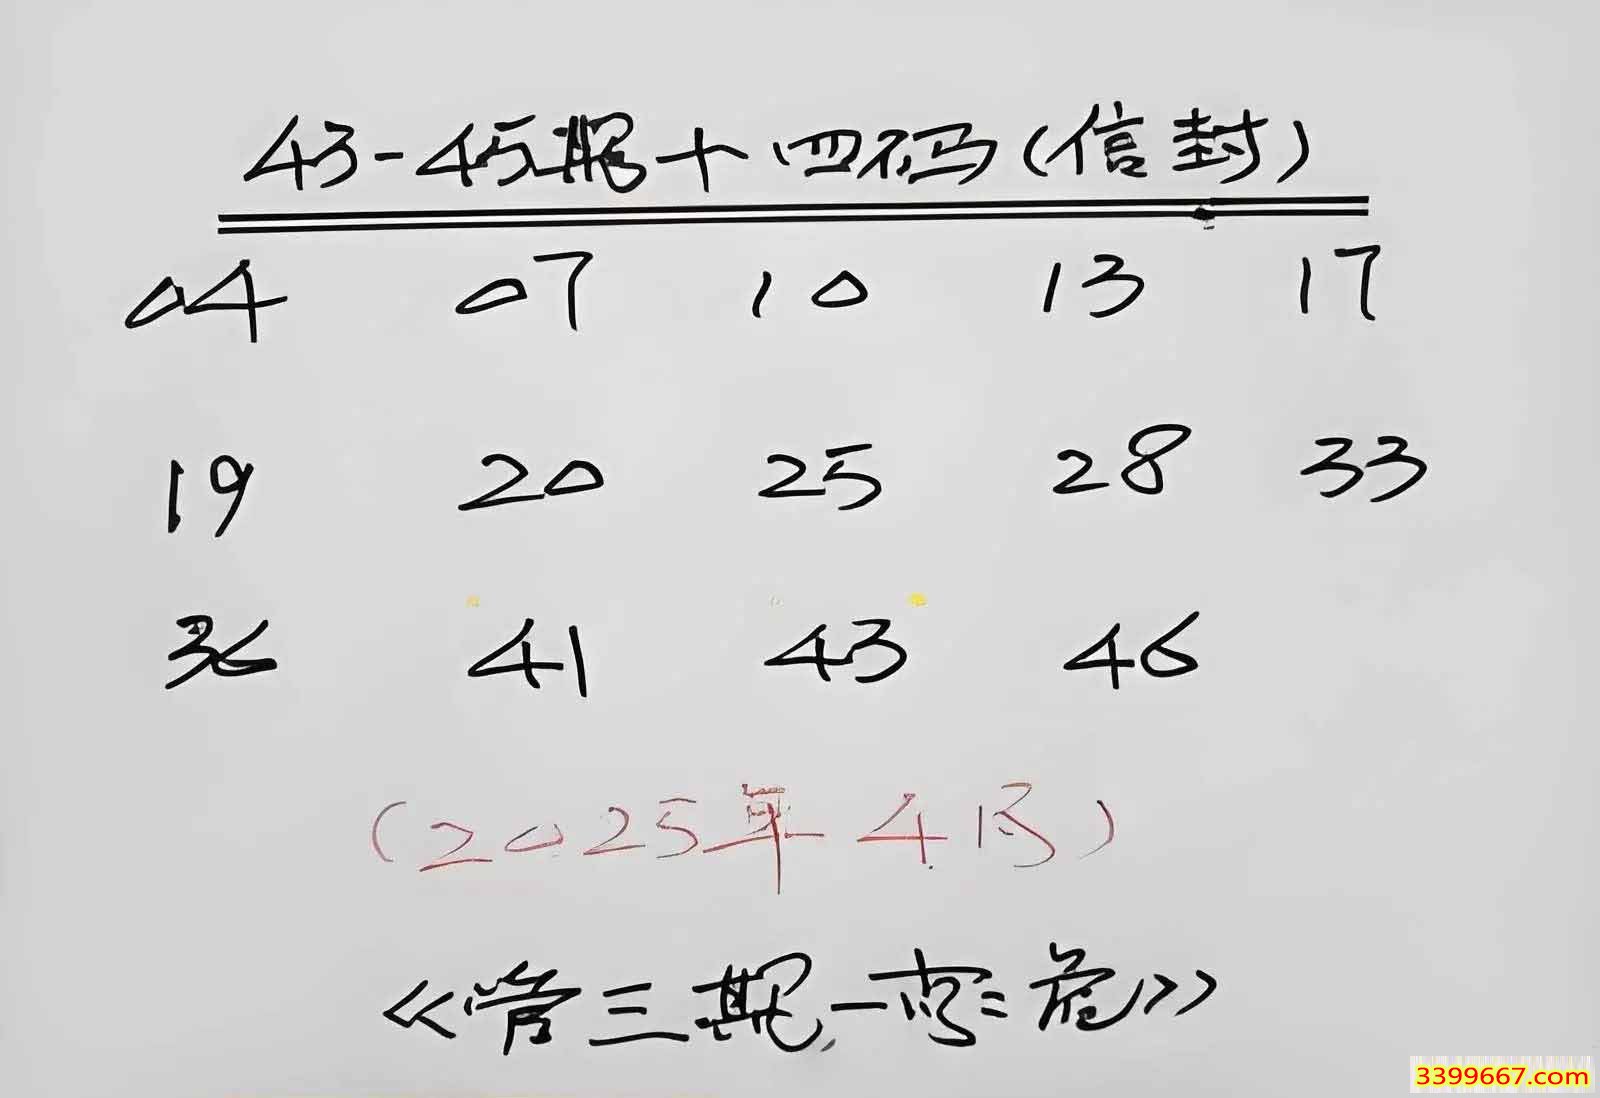 43-45期十四码(信封)
04 07 10 13 17
19 20 25 28 33
36 41 43 46
(2025年4月)
《管三期,一
3399667.com